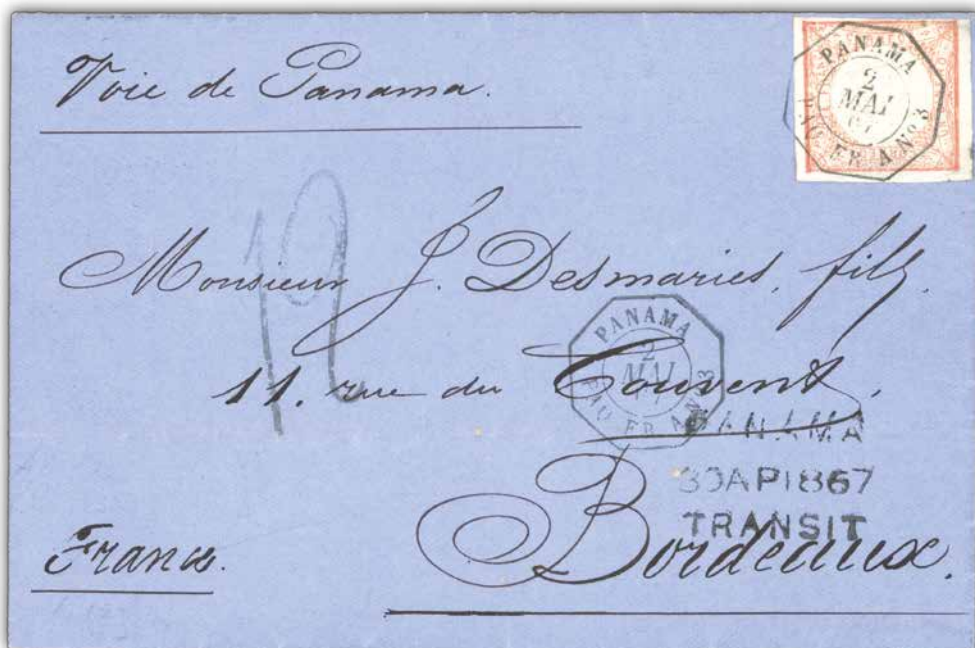 Voie de Panama.
PANAMA
2
MAI
67
PAQ. FR. A No 3
12
Monsieur J. Desmaries, fils.
PANAMA
2
MAI
PAQ. FR. A No 3
11. rue du Couvent,
PANAMA
30AP1867
TRANSIT
Bordeaux.
France.